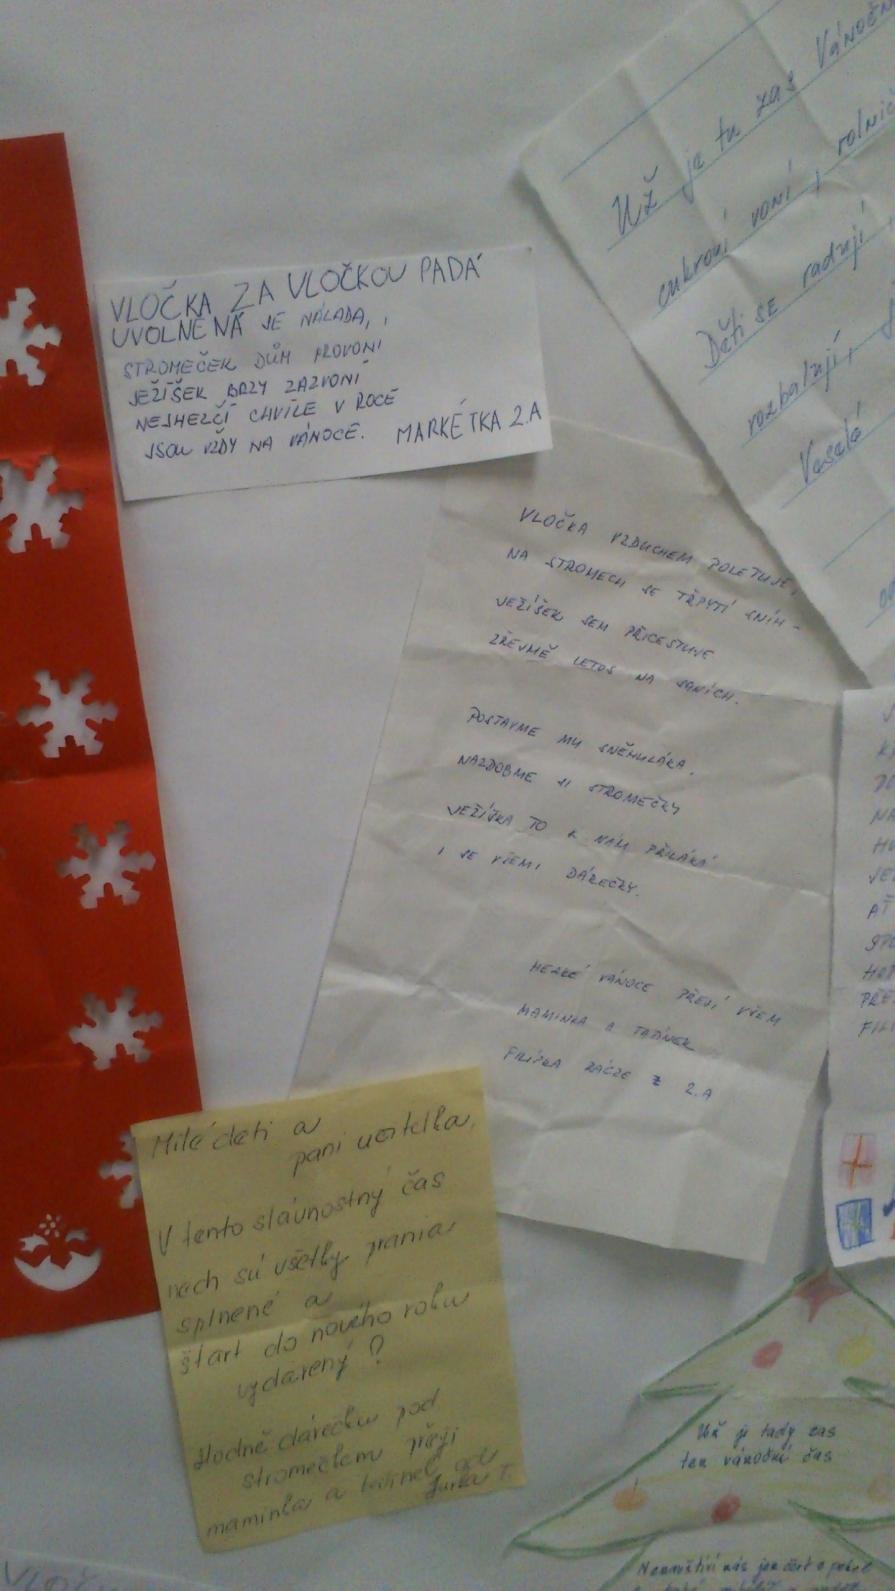 Už je tu zas Vánočn
cukroví voní, rolnič
Děti se radují,
rozbalují,
Veselé
VLOČKA ZA VLOČKOU PADÁ
UVOLNĚNÁ JE NÁLADA,
STROMEČEK DŮM PROVONÍ
JEŽÍŠEK BRZY ZAZVONÍ
NEJHEZČÍ CHVÍLE V ROCE
JSOU VŽDY NA VÁNOCE. MARKÉTKA 2.A
VLOČKA VZDUCHEM POLETUJE,
NA STROMECH SE TŘPYTÍ SNÍH -
JEŽÍŠEK SEM PŘICESTUJE
ZŘEJMĚ LETOS NA SANÍCH.
POSTAVME MU SNĚHULÁKA,
NAZDOBME SI STROMEČKY
JEŽÍŠKA TO K NÁM PŘILÁKÁ
I SE VŠEMI DÁREČKY.
HEZKÉ VÁNOCE PŘEJÍ VŠEM
MAMINKA A TATÍNEK
Z 2.A
Milé deti a
pani učitelka,
V tento slávnostný čas
nech sú všetky prania
splnené a
štart do nového roku
vydarený?
Hodně dárečku pod
stromečkem přeji
maminka a tatínek od
Jurka T.
NA
AŤ
Už je tady zas
ten vánoční čas
VLOČK